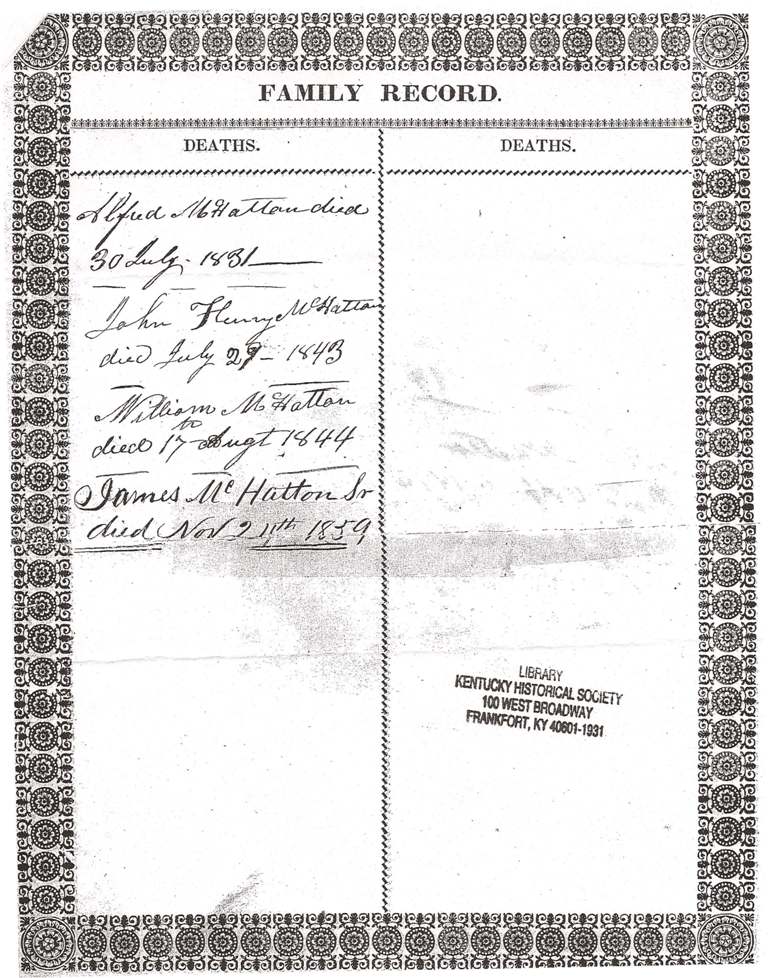 FAMILY RECORD.
DEATHS.
Alfred McHatton died
30 July. 1831
John Henry McHatton
died July 29 - 1843
William McHatton
died 17th Augt 1844
James McHatton Sr
died Nov 24th 1859
DEATHS.
LIBRARY
KENTUCKY HISTORICAL SOCIETY
100 WEST BROADWAY
FRANKFORT, KY 40601-1931